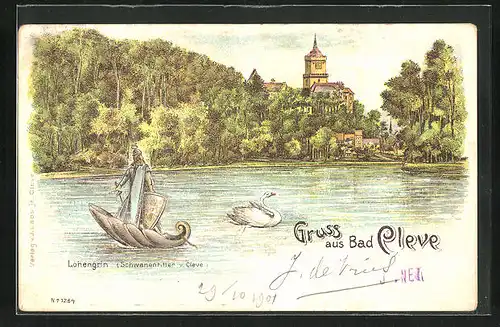 Gruss
aus Bad Cleve
Lohengrin (Schwanenritter v. Cleve)
J. de Vries
NEU
29/10 1901
No 1264
Verlag